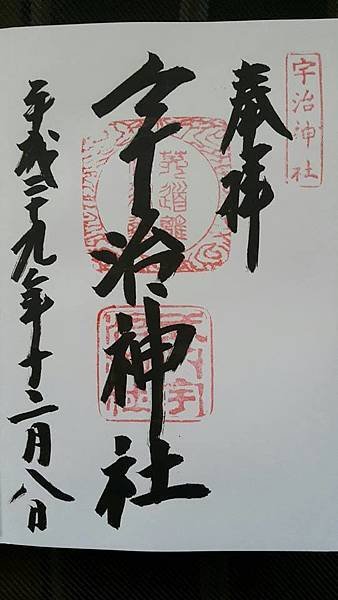 宇治神社
奉拝
宇治神社
平成二十九年十二月八日